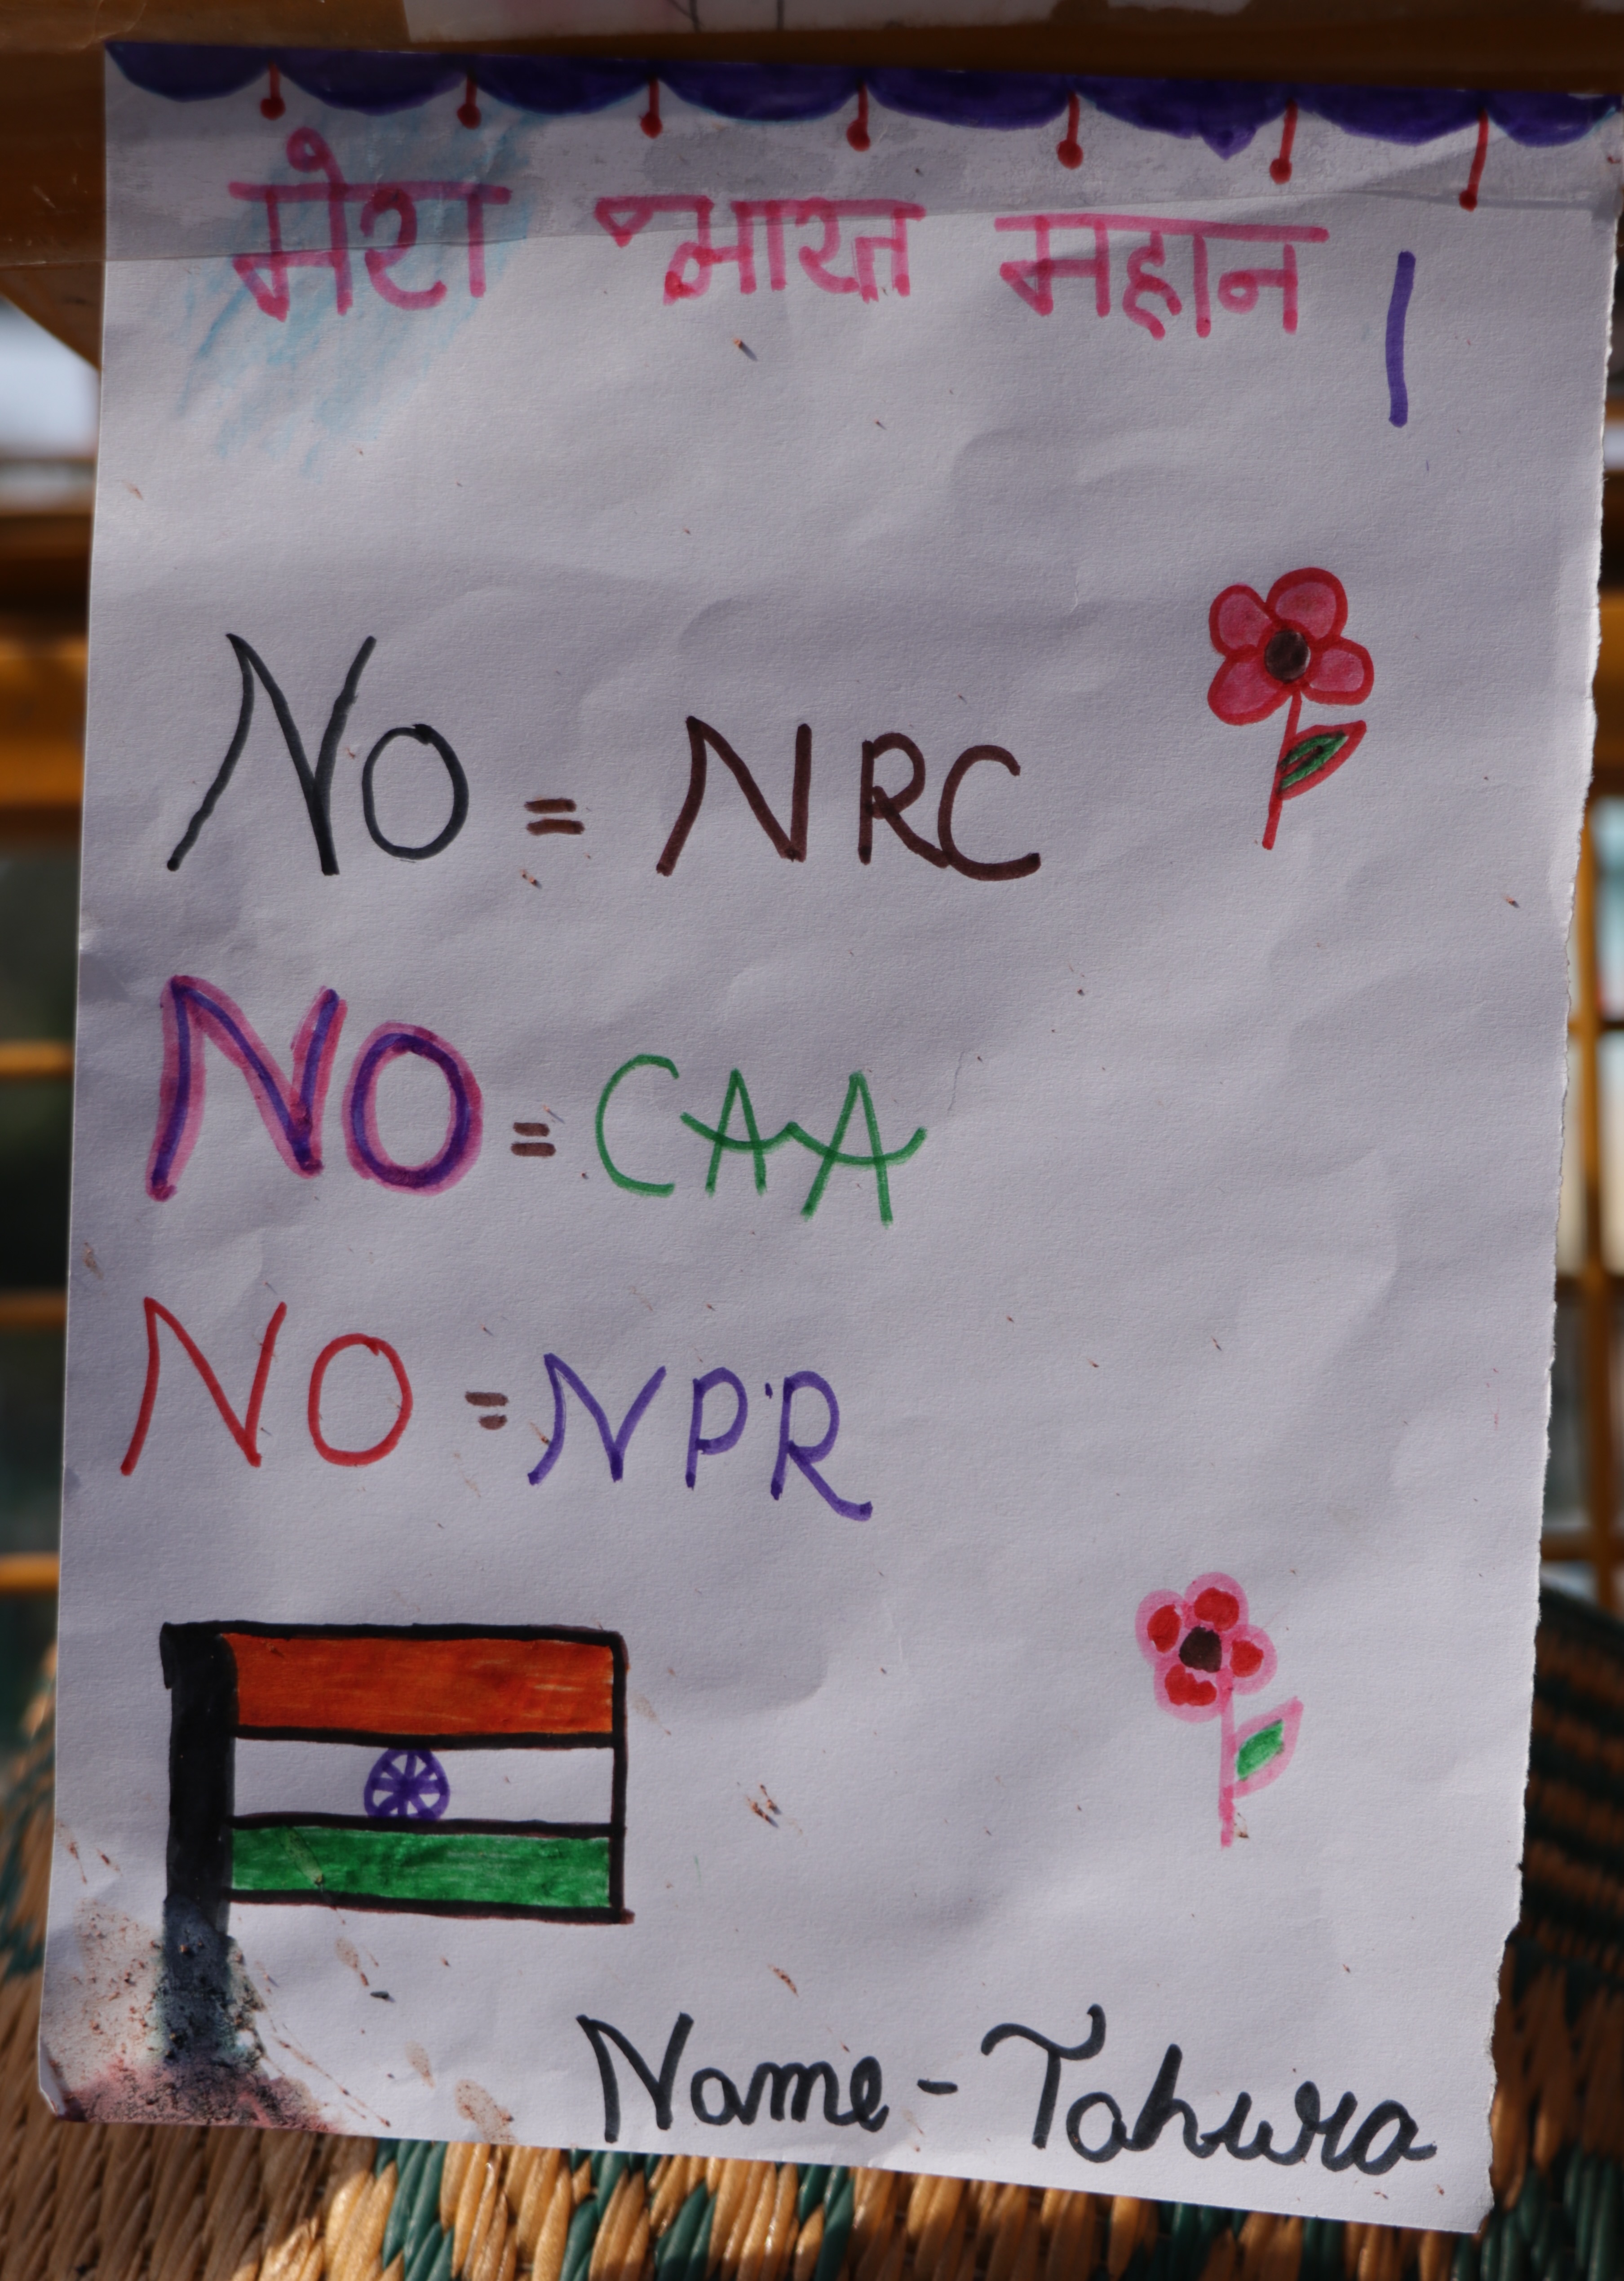 मेरा भारत महान ।
NO = NRC
NO = CAA
NO = NPR
Name - Tahura